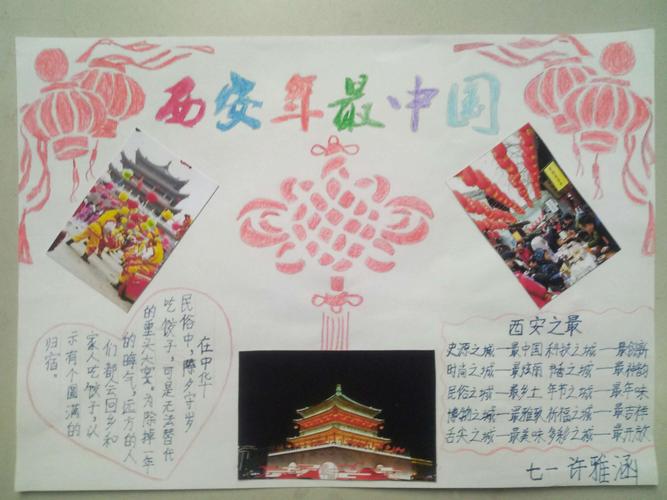 西安年最中国
在中华
民俗中，除夕守岁，
吃饺子，可是无法替代
的重头大宴，为除掉一年
的晦气，远方的人
们都会回乡和
家人吃饺子，以
示有个圆满的
归宿。
西安之最
史源之城——最中国 科技之城——最创新
时尚之城——最炫丽 书香之城——最神韵
民俗之城——最乡土 年节之城——最年味
博物之城——最雅致 祈福之城——最吉祥
舌尖之城——最美味 多彩之城——最开放
七一 许雅涵